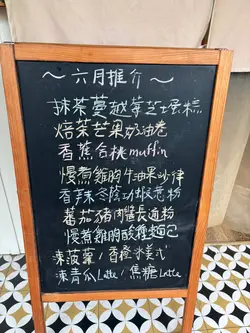 ~六月推介~
抹茶蔓越莓芝士蛋糕
焙茶芒果奶油卷
香蕉合桃muffin
慢煮雞胸牛油果沙律
香辣冬蔭功蝦意粉
蕃茄豬肉醬長通粉
慢煮雞肉酸種麵包
凍菠蘿/香橙冰美式
凍青瓜Latte/焦糖Latte